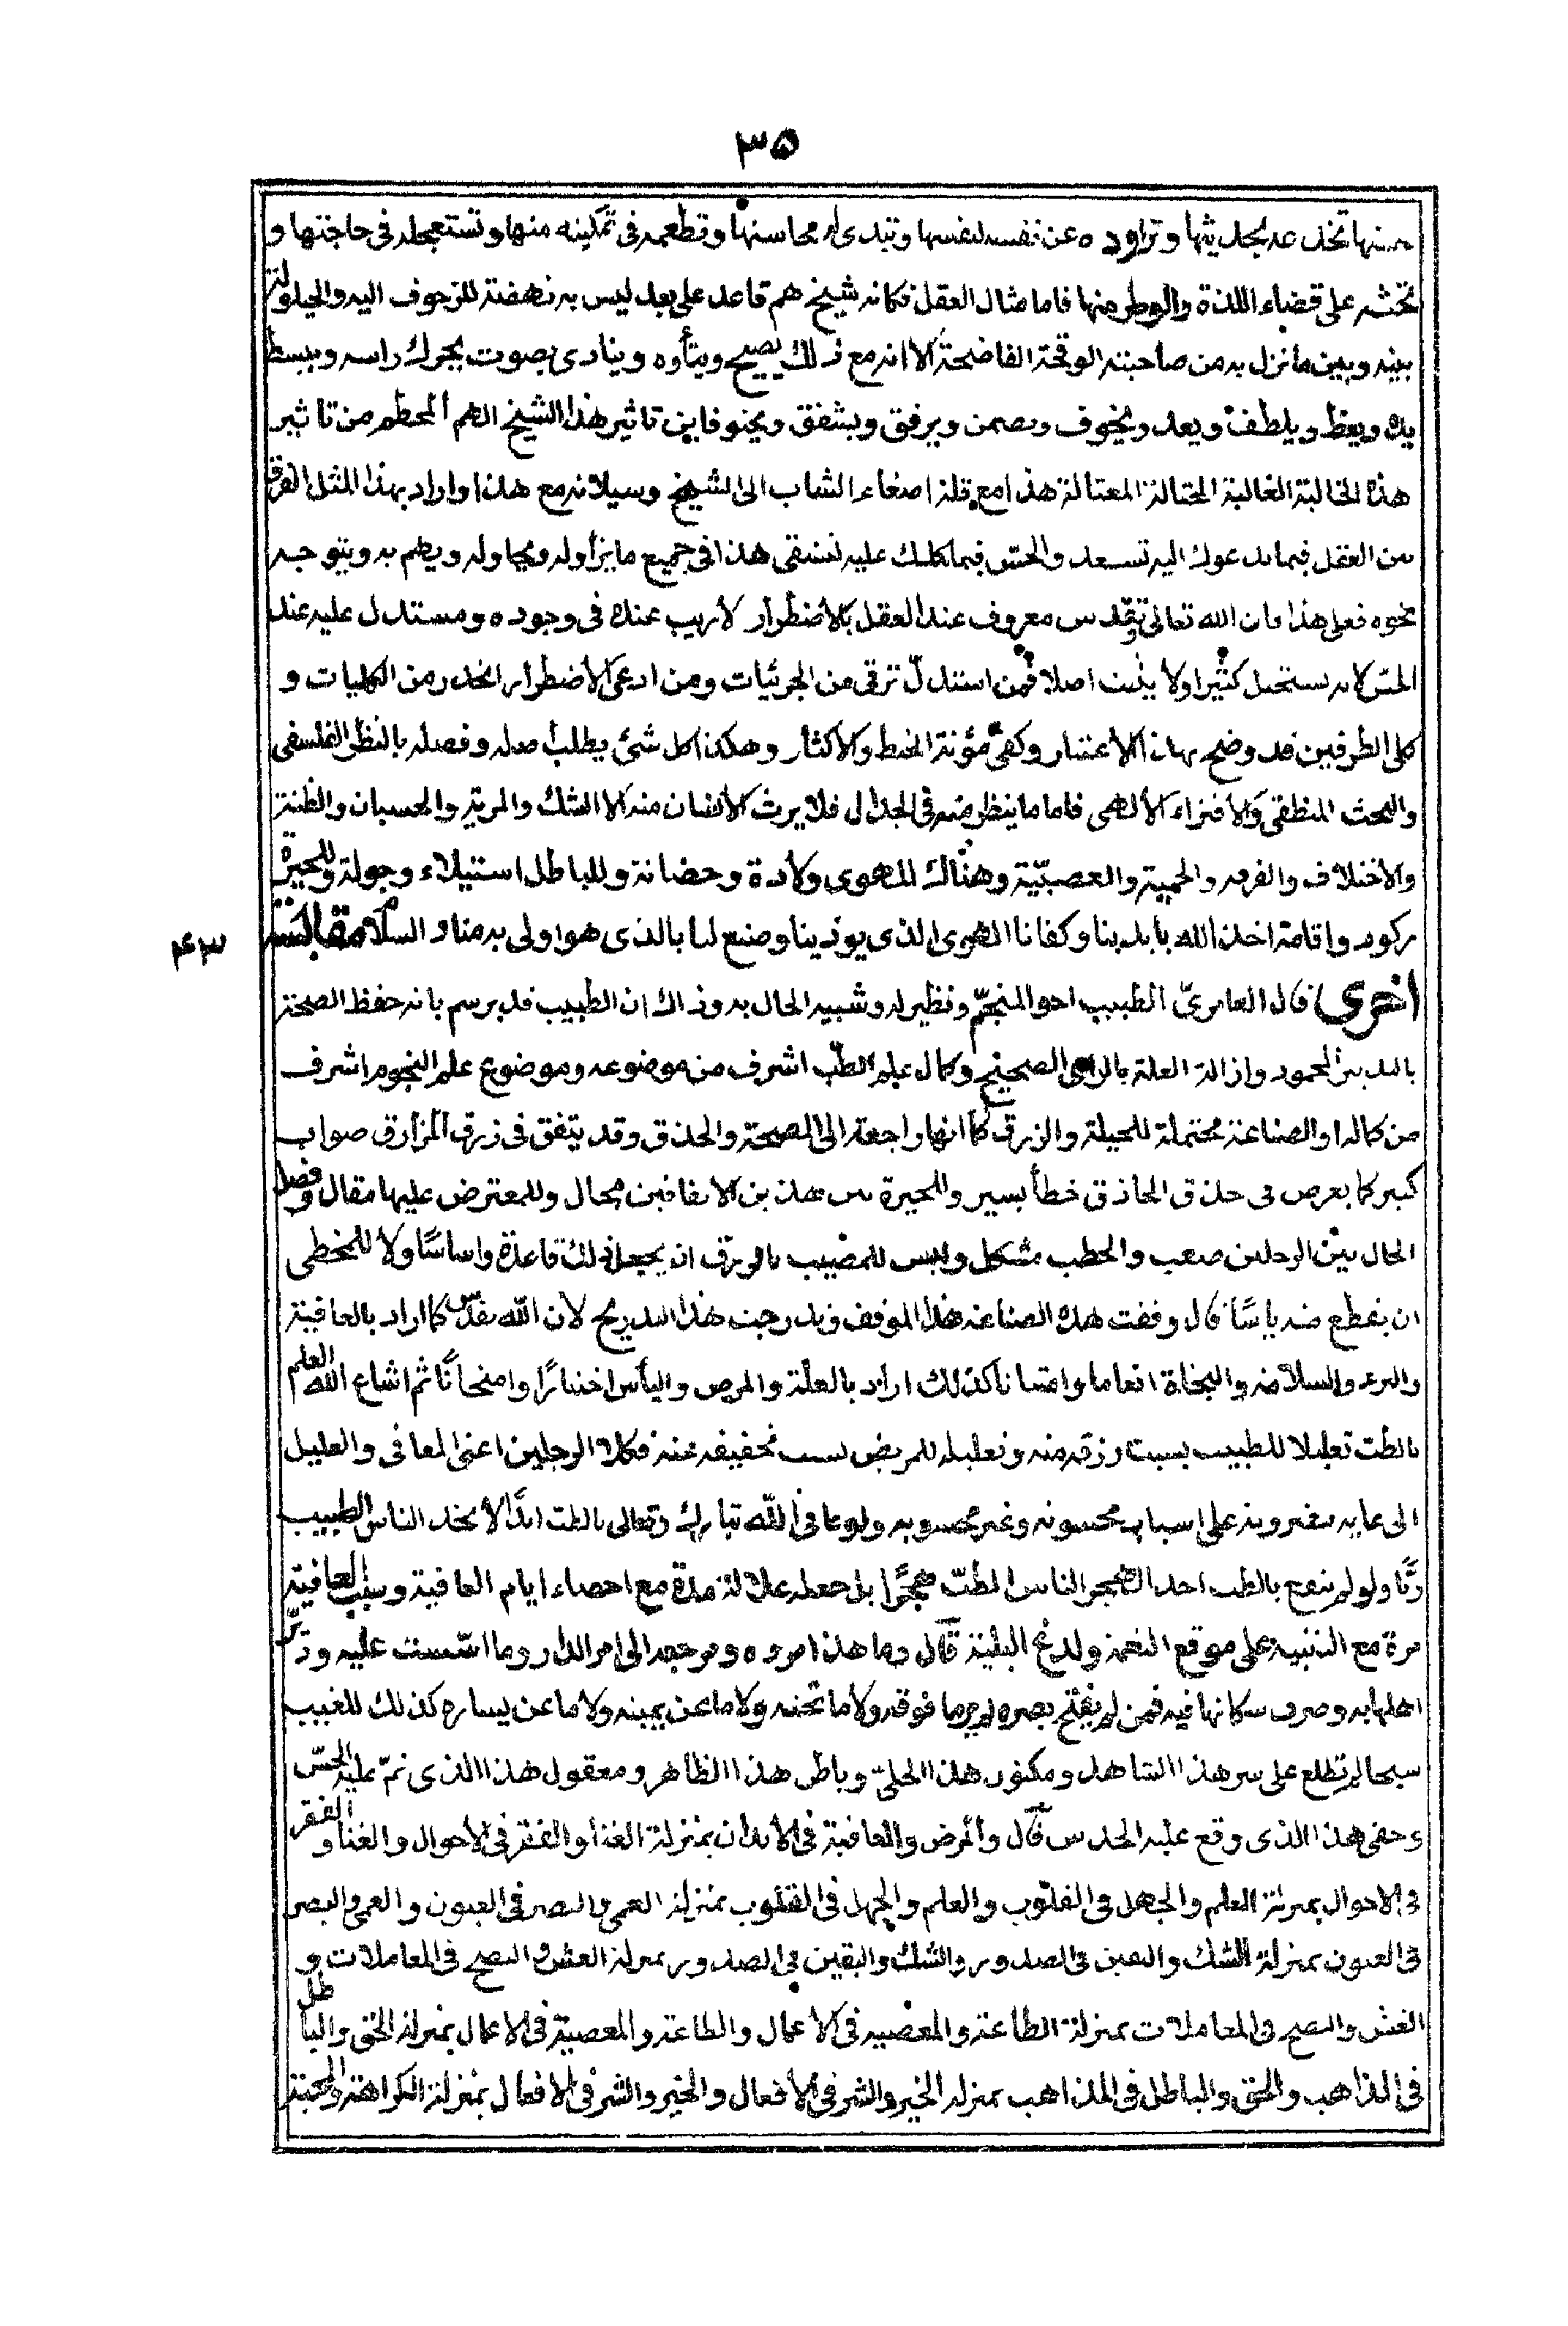 ٣٥
يمينها تخدعه بحديثها وتراوده عن نفسه لنفسها وتبدى له محاسنها وتطعمه فى تمكينه منها وتستعجله فى حاجتها و
تحثه على قضاء اللذة والوطر منها فاما مثال العقل فكانه شيخ هم قاعد على بعد ليس به نهضة للزحوف اليه والحيلولة
بينه وبين ما نزل به من صاحبته الوقحة الفاضحة الا انه مع ذلك يصيح ويتأوه وينادى بصوت يحرك راسه ويبسط
يده ويعظ ويلطف ويعد ويخوف ويضمن ويرفق ويشفق ويحنو فاين تاثير هذا الشيخ الهم المحطم من تاثير
هذه الخالبة الغالبة المحتالة المغتالة هذا مع قلة اصغاء الشاب الى الشيخ وسيلانه مع هذا واراد بهذا المثل الفرق
بين العقل فيما يدعوك اليه تسعد والحس فيما يحملك عليه لتشقى هذا فى جميع ما يزاوله ويحاوله ويهم به ويتوجه
نحوه فعلى هذا فان الله تعالى وتقدس معروف عند العقل بالاضطرار لا ريب عنده فى وجوده ومستدل عليه عند
الحس لانه يستحيل كثيرا ولا يثبت اصلا فمن استدل ترقى من الجزئيات ومن ادعى الاضطرار انحدر من الكليات و
كلى الطرفين قد وضح بهذا الاعتبار وكفى مؤنة الخبط والاكثار وهكذا كل شئ يطلب صله وفصله بالنظر الفلسفى
والبحث المنطقى والاقتراء الالهى فاما ما ينظر منه فى الجدال فلا يرث الانسان منه الا الشك والمرية والحسبان والظنة
والاختلاف والفرقة والحمية والعصبية وهناك للهوى ولادة وحضانة وللباطل استيلاء وجولة وللحيرة
ركود واقامة اخذ الله بايدينا وكفانا الهوى الذى يوذينا وصنع لنا بالذى هو اولى به منا والسلام مقابسة
٤٣
اخرى قال العامرىّ الطبيب اخو المنجّم ونظير له وشبيه الحال به وذاك ان الطبيب قد يرسم بانه حفظ الصحة
بالتدبير المحمود وازالة العلة بالراى الصحيح وكمال علم الطب اشرف من موضوعه وموضوع علم النجوم اشرف
من كماله والصناعة محتملة للحيلة والزرق كما انها راجعة الى الصحة والحذق وقد يتفق فى زرق الزارق صواب
كبير كما يعرض فى حذق الحاذق خطأ يسير وللحيرة بين هذين الاتفاقين مجال وللمعترض عليها مقال وفصل
الحال بين الرجلين صعب والخطب مشكل وليس للمصيب بالزرق ان يجعل ذلك قاعدة واساسا ولا للمخطى
ان ينقطع منه ياسا قال وقفت هذه الصناعة هذا الموقف وتدرجت هذا التدريج لان الله تقدس كما اراد بالعافية
والبرء والسلامة والنجاة انعاما وامتنانا كذلك اراد بالعلة والمرض والياس اختبارا وامتحانا ثم اشاع الله العلم
بالطب تعليلا للطبيب بسبب رزقه منه وتعليله للمريض بسبب تخفيفه عنه فكلا الرجلين اعنى المعافى والعليل
الى غايه مقررونه على اسباب محسوبه وغير محسوبه ولو عافى الله تبارك وتعالى بالطب ابدا لاتخذ الناس الطبيب
ربّا ولو لم ينفع بالطب احدا لهجر الناس الطب هجرا بل جعله علالة مدة مع احصاء ايام العافية وسلب العافية
مرة مع التنبيه على موقع النعمة ولدغ البلية قال وما هذا امره ومرجعه الى امر الدار وما اسست عليه ودبّر
اهلها به وصرف سكانها فيه فمن لم يفتح بصره لم ير ما فوقه ولا ما تحته ولا ما عن يمينه ولا ما عن يساره كذلك للغيب
سبحا لم تطلع على سر هذا الشاهد ومكنون هذا الجلى وباطن هذا الظاهر ومعقول هذا الذى نمّ عليه الحسّ
وخفى هذا الذى وقع عليه الحدس قال والمرض والعافية فى الابدان بمنزلة الغنا والفقر فى الاحوال والغنا والفقر
فى الاحوال بمنزلة العلم والجهل فى القلوب والعلم والجهل فى القلوب بمنزلة العمى والبصر فى العيون والعمى والبصر
فى العيون بمنزلة الشك واليقين فى الصدور والشك واليقين فى الصدور بمنزلة الغش والنصح فى المعاملات و
الغش والنصح فى المعاملات بمنزلة الطاعة والمعصية فى الاعمال والطاعة والمعصية فى الاعمال بمنزلة الحق والباطل
فى المذاهب والحق والباطل فى المذاهب بمنزلة الخير والشر فى الافعال والخير والشر فى الافعال بمنزلة الكراهة والمحبة